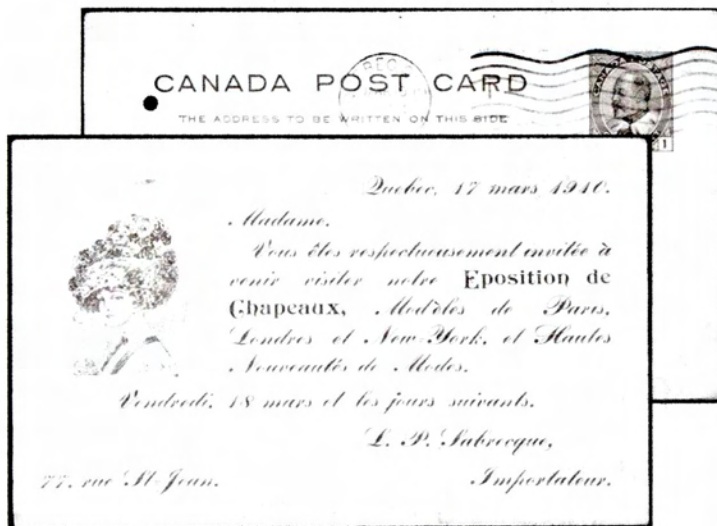 CANADA POST CARD
THE ADDRESS TO BE WRITTEN ON THIS SIDE
CANADA POSTAGE
1
Quebec, 17 mars 1910.
Madame.
Vous êtes respectueusement invitée à
venir visiter notre Eposition de
Chapeaux, Modèles de Paris,
Londres et New-York, et Hautes
Nouveautés de Modes.
Vendredi, 18 mars et les jours suivants.
L. P. Labrecque,
77, rue St-Jean.
Importateur.